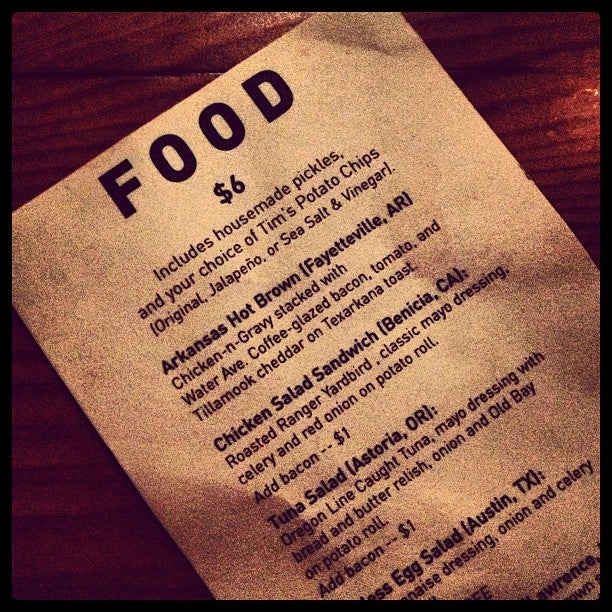 FOOD
$6
Includes housemade pickles,
and your choice of Tim's Potato Chips
(Original, Jalapeño, or Sea Salt & Vinegar).
Arkansas Hot Brown (Fayetteville, AR)
Chicken-n-Gravy stacked with
Water Ave. Coffee-glazed bacon, tomato, and
Tillamook cheddar on Texarkana toast.
Chicken Salad Sandwich (Benicia, CA):
Roasted Ranger Yardbird , classic mayo dressing,
celery and red onion on potato roll.
Add bacon -- $1
Tuna Salad (Astoria, OR):
Oregon Line Caught Tuna, mayo dressing with
bread and butter relish, onion and Old Bay
on potato roll.
Add bacon -- $1
Egg Salad (Austin, TX):
dressing, onion and celery